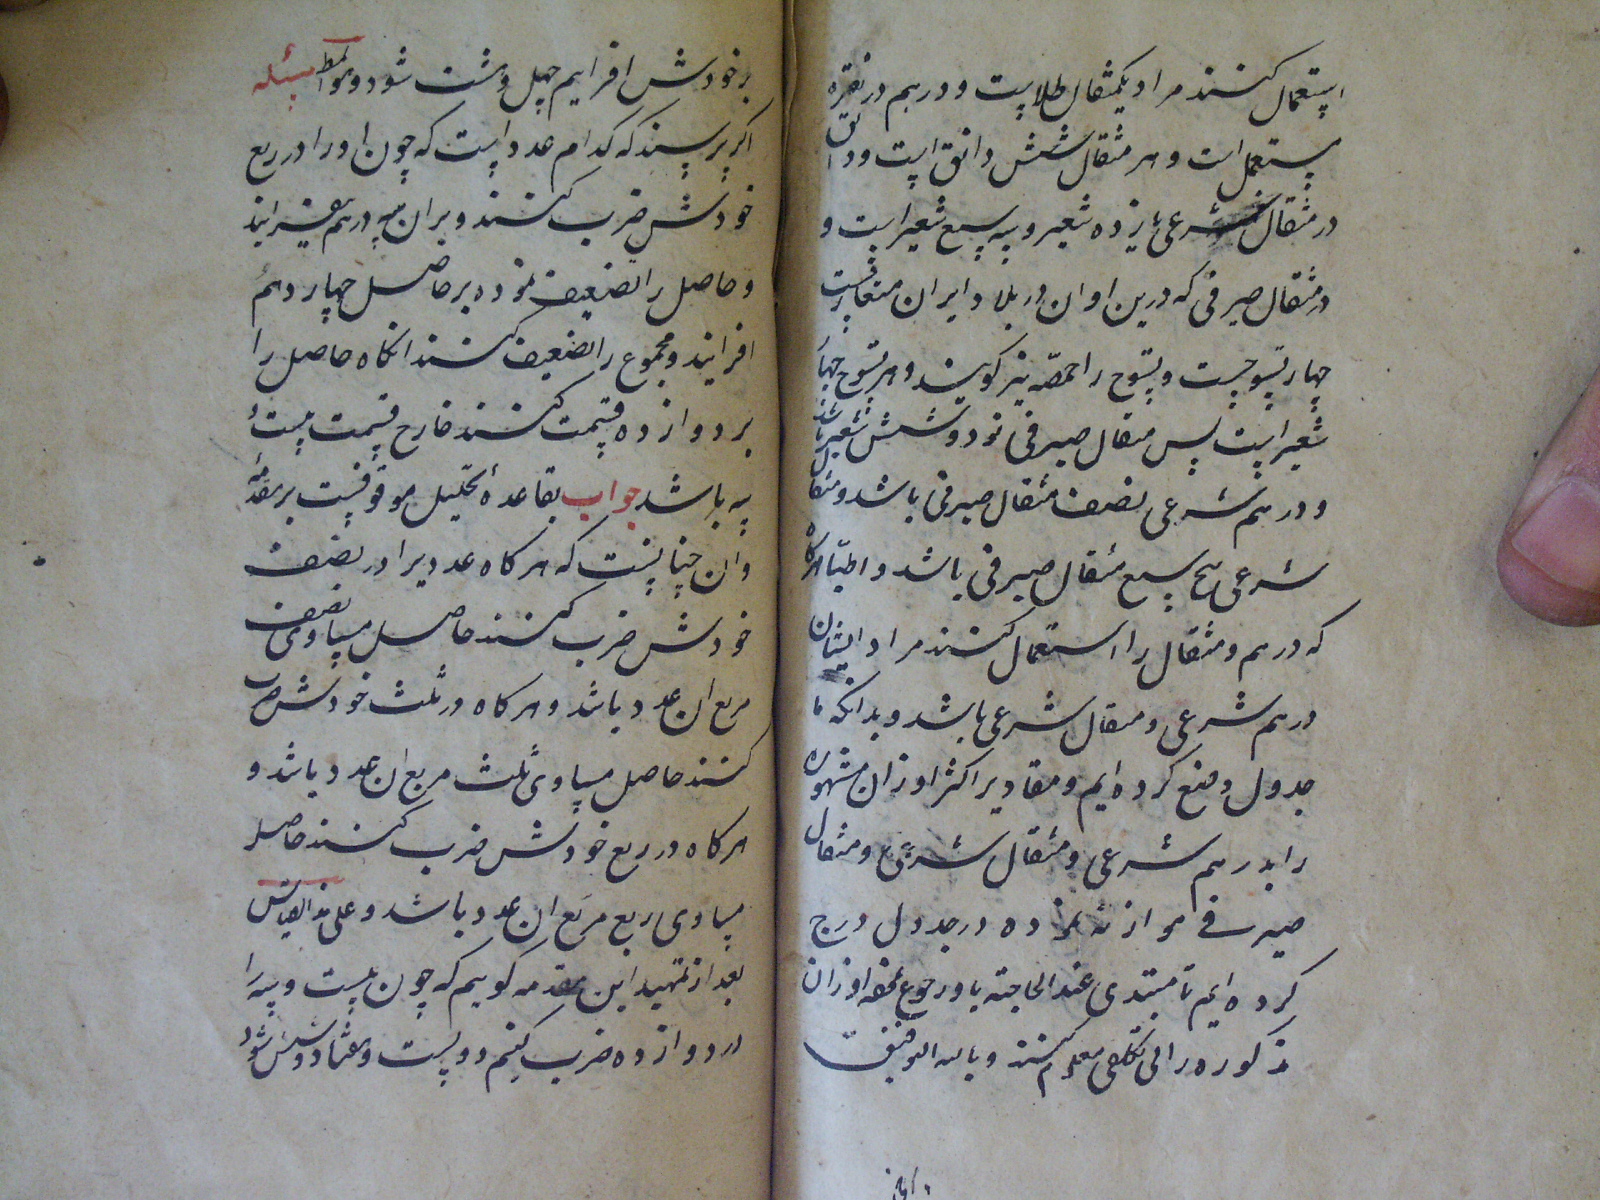 استعمال کنند مراد یکمثقال طلاست و درهم در نقره
مستعمل است و هر مثقال شش دانق است و دانق
در مثقال شرعی یازده شعیر و سه سبع شعیر است و
در مثقال صیرفی که درین اوان در بلاد ایران متعارفست
چهار تسوجست و تسوج را حمصه نیز کویند و هر تسوج چهار
شعیر است پس مثقال صیرفی نود و شش شعیر باشد
و درهم شرعی نصف مثقال صیرفی باشد و مثقال
شرعی پنج سبع مثقال صیرفی باشد و اطبا هرکاه
که درهم و مثقال را استعمال کنند مراد ایشان
درهم شرعی و مثقال شرعی باشد و بدانکه ما
جدول وضع کرده ایم و مقادیر اکثر اوزان مشهوره
را بدرهم شرعی و مثقال شرعی و مثقال
صیرفی موازنه نموده در جدول درج
کرده ایم تا مبتدی عند الحاجة باو رجوع نموده اوزان
مذکوره را بی تکلفی معلوم کنند و بالله التوفیق
بر خودش افزایم چهل و هشت شود و هو المط مسئله
اکر پرسند که کدام عدد است که چون او را در ربع
خودش ضرب کنند و بران سه درهم بیفزایند
و حاصل را تضعیف نموده بر حاصل چهار درهم
افزایند و مجموع را تضعیف کنند انکاه حاصل را
بر دوازده قسمت کنند خارج قسمت بیست و
سه باشد جواب بقاعده تحلیل موقوفست بر مقدمه
و ان چنانست که هرکاه عددیرا در نصف
خودش ضرب کنند حاصل مساوی نصف
مربع ان عدد باشد و هرکاه در ثلث خودش ضرب
کنند حاصل مساوی ثلث مربع ان عدد باشد و
هرکاه در ربع خودش ضرب کنند حاصل
مساوی ربع مربع ان عدد باشد و علی هذا القیاس
بعد از تمهید این مقدمه کوییم که چون بیست و سه را
در دوازده ضرب کنیم دویست و هفتاد و شش شود